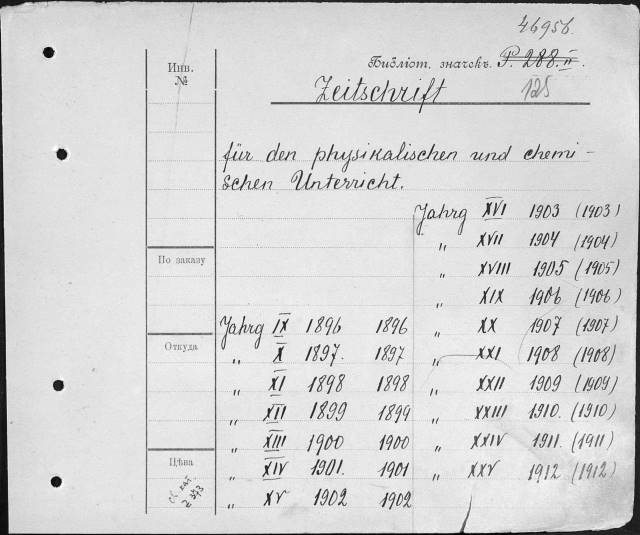 46956.
Инв.
№
Библіот. значекъ. P. 288. II.
Zeitschrift 125
für den physikalischen und chemi-
schen Unterricht.
Jahrg XVI 1903 (1903)
„ XVII 1904 (1904)
„ XVIII 1905 (1905)
„ XIX 1906 (1906)
„ XX 1907 (1907)
„ XXI 1908 (1908)
„ XXII 1909 (1909)
„ XXIII 1910. (1910)
„ XXIV 1911. (1911)
„ XXV 1912 (1912)
По заказу
Откуда
Цѣна
Jahrg IX 1896 1896
„ X 1897. 1897
„ XI 1898 1898
„ XII 1899 1899
„ XIII 1900 1900
„ XIV 1901. 1901
„ XV 1902 1902